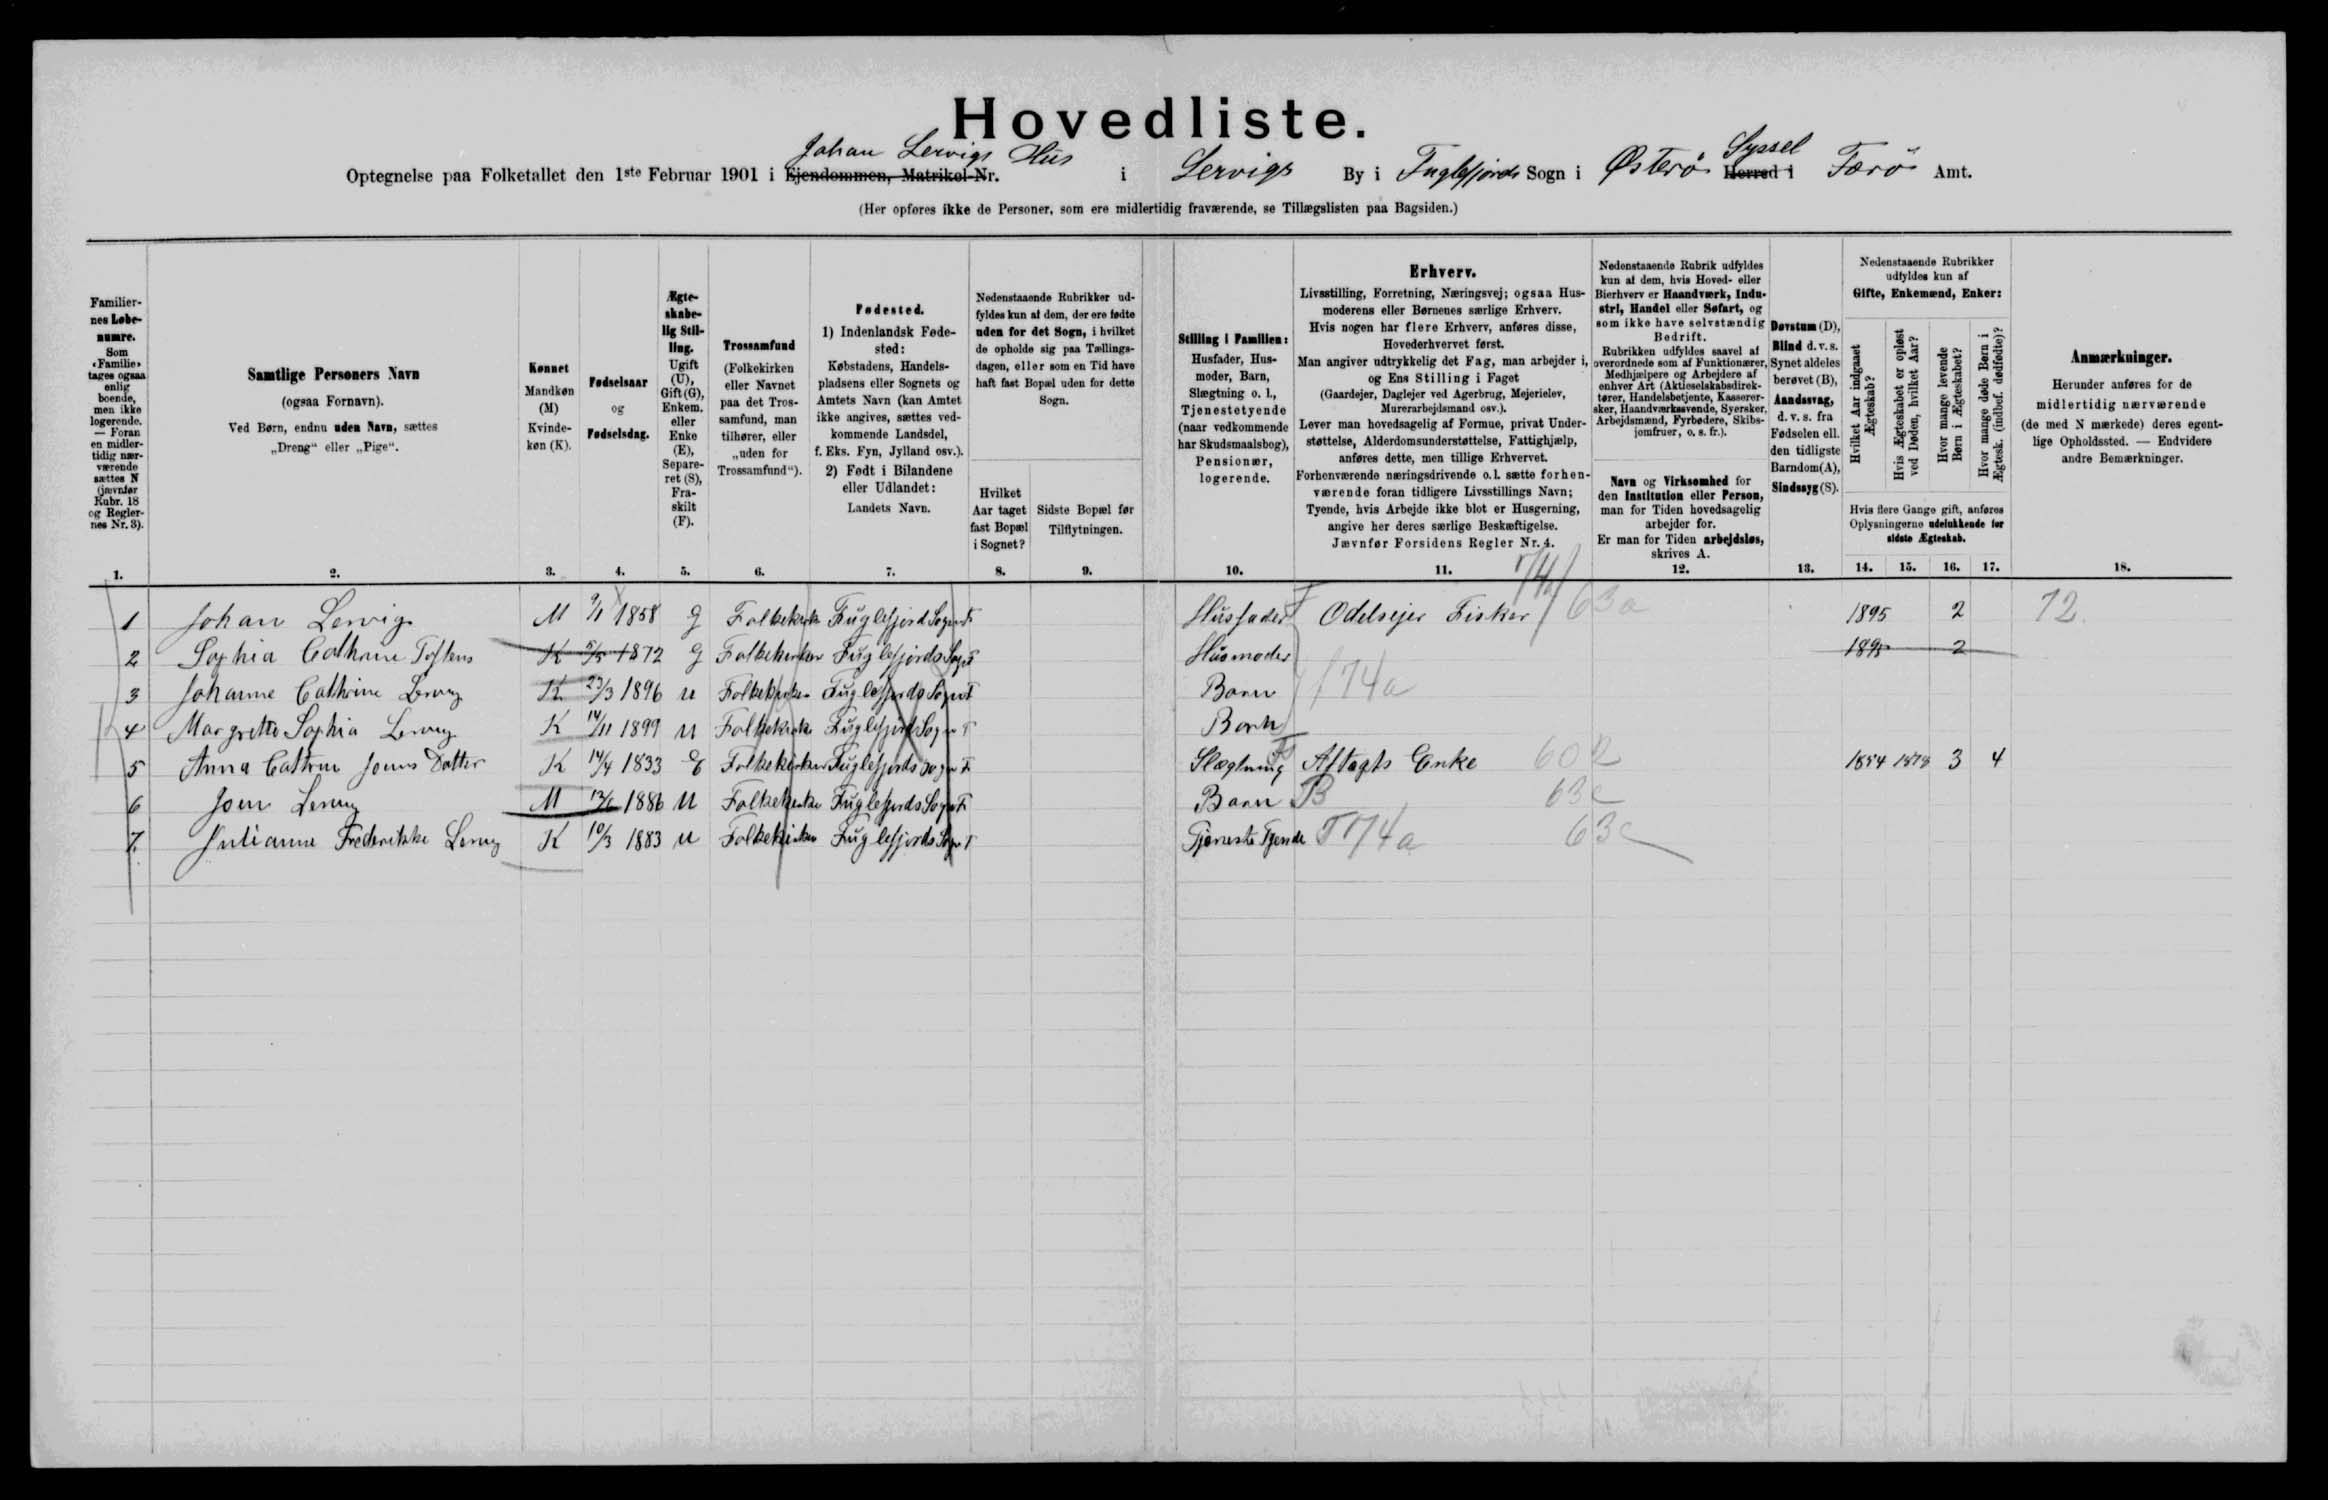 Hovedliste.
Johan Lervigs Hus Syssel
Optegnelse paa Folketallet den 1ste Februar 1901 i Ejendommen, Matrikel-Nr. i Lervigs By i Fuglefjords Sogn i Østerø Herred i Færø Amt.
(Her opføres ikke de Personer, som ere midlertidig fraværende, se Tillægslisten paa Bagsiden.)
Familier-
nes Løbe-
numre.
Som
«Familie»
tages ogsaa
enlig
boende,
men ikke
logerende.
— Foran
en midler-
tidig nær-
værende
sættes N
(jævnfør
Rubr. 18
og Regler-
nes Nr. 3).
1.
Samtlige Personers Navn
(ogsaa Fornavn).
Ved Børn, endnu uden Navn, sættes
„Dreng“ eller „Pige“.
2.
Kønnet
Mandkøn
(M)
Kvinde-
køn (K).
3.
Fødselsaar
og
Fødselsdag.
4.
Ægte-
skabe-
lig Stil-
ling.
Ugift
(U),
Gift (G),
Enkem.
eller
Enke
(E),
Separe-
ret (S),
Fra-
skilt
(F).
5.
Trossamfund
(Folkekirken
eller Navnet
paa det Tros-
samfund, man
tilhører, eller
„uden for
Trossamfund“).
6.
Fødested.
1) Indenlandsk Føde-
sted:
Købstadens, Handels-
pladsens eller Sognets og
Amtets Navn (kan Amtet
ikke angives, sættes ved-
kommende Landsdel,
f. Eks. Fyn, Jylland osv.).
2) Født i Bilandene
eller Udlandet:
Landets Navn.
7.
Nedenstaaende Rubrikker ud-
fyldes kun af dem, der ere fødte
uden for det Sogn, i hvilket
de opholde sig paa Tællings-
dagen, eller som en Tid have
haft fast Bopæl uden for dette
Sogn.
Hvilket
Aar taget
fast Bopæl
i Sognet?
8.
Sidste Bopæl før
Tilflytningen.
9.
Stilling i Familien:
Husfader, Hus-
moder, Barn,
Slægtning o. l.,
Tjenestetyende
(naar vedkommende
har Skudsmaalsbog),
Pensionær,
logerende.
10.
Erhverv.
Livsstilling, Forretning, Næringsvej; ogsaa Hus-
moderens eller Børnenes særlige Erhverv.
Hvis nogen har flere Erhverv, anføres disse,
Hovederhvervet først.
Man angiver udtrykkelig det Fag, man arbejder i,
og Ens Stilling i Faget
(Gaardejer, Daglejer ved Agerbrug, Mejerielev,
Murerarbejdsmand osv.).
Lever man hovedsagelig af Formue, privat Under-
støttelse, Alderdomsunderstøttelse, Fattighjælp,
anføres dette, men tillige Erhvervet.
Forhenværende næringsdrivende o. l. sætte forhen-
værende foran tidligere Livsstillings Navn;
Tyende, hvis Arbejde ikke blot er Husgerning,
angive her deres særlige Beskæftigelse.
Jævnfør Forsidens Regler Nr. 4.
11.
Nedenstaaende Rubrik udfyldes
kun af dem, hvis Hoved- eller
Bierhverv er Haandværk, Indu-
stri, Handel eller Søfart, og
som ikke have selvstændig
Bedrift.
Rubrikken udfyldes saavel af
overordnede som af Funktionærer,
Medhjælpere og Arbejdere af
enhver Art (Aktieselskabsdirek-
tører, Handelsbetjente, Kasserer-
sker, Haandværkssvende, Syersker,
Arbejdsmænd, Fyrbødere, Skibs-
jomfruer, o. s. fr.).
Navn og Virksomhed for
den Institution eller Person,
man for Tiden hovedsagelig
arbejder for.
Er man for Tiden arbejdsløs,
skrives A.
12.
Døvstum (D),
Blind d. v. s.
Synet aldeles
berøvet (B),
Aandssvag,
d. v. s. fra
Fødselen ell.
den tidligste
Barndom (A),
Sindssyg (S).
13.
Nedenstaaende Rubrikker
udfyldes kun af
Gifte, Enkemænd, Enker:
Hvilket Aar indgaaet
Ægteskab?
Hvis Ægteskabet er opløst
ved Døden, hvilket Aar?
Hvor mange levende
Børn i Ægteskabet?
Hvor mange døde Børn i
Ægtesk. (indbef. dødfødte)?
Hvis flere Gange gift, anføres
Oplysningerne udelukkende for
sidste Ægteskab.
14. 15. 16. 17.
Anmærkninger.
Herunder anføres for de
midlertidig nærværende
(de med N mærkede) deres egent-
lige Opholdssted. — Endvidere
andre Bemærkninger.
18.
1 Johan Lervig M 9/1 1858 G Folkekirke Fuglefjord Sogn F Husfader F Odelsejer Fisker 63a 1895 2 12
2 Sophia Cathrine Toftens K 5/5 1872 G Folkekirken Fuglefjords Sogn F Husmoder 1895 2
3 Johanne Cathrine Lervig K 23/3 1896 U Folkekirken Fuglefjords Sogn F Barn 174a
4 Margrethe Sophia Lervig K 14/11 1899 U Folkekirke Fuglefjord Sogn F Barn
5 Anna Cathrine Joens Datter K 14/4 1833 E Folkekirken Fuglefjords Sogn F Slægtning Aftagts Enke 60 1854 1878 3 4
6 Joen Lervig M 1886 U Folkekirke Fuglefjords Sogn F Barn B 63c
7. Julianne Frederikke Lervig K 10/3 1883 U Folkekirken Fuglefjords Sogn F Tjeneste Tyende T 174a 63c